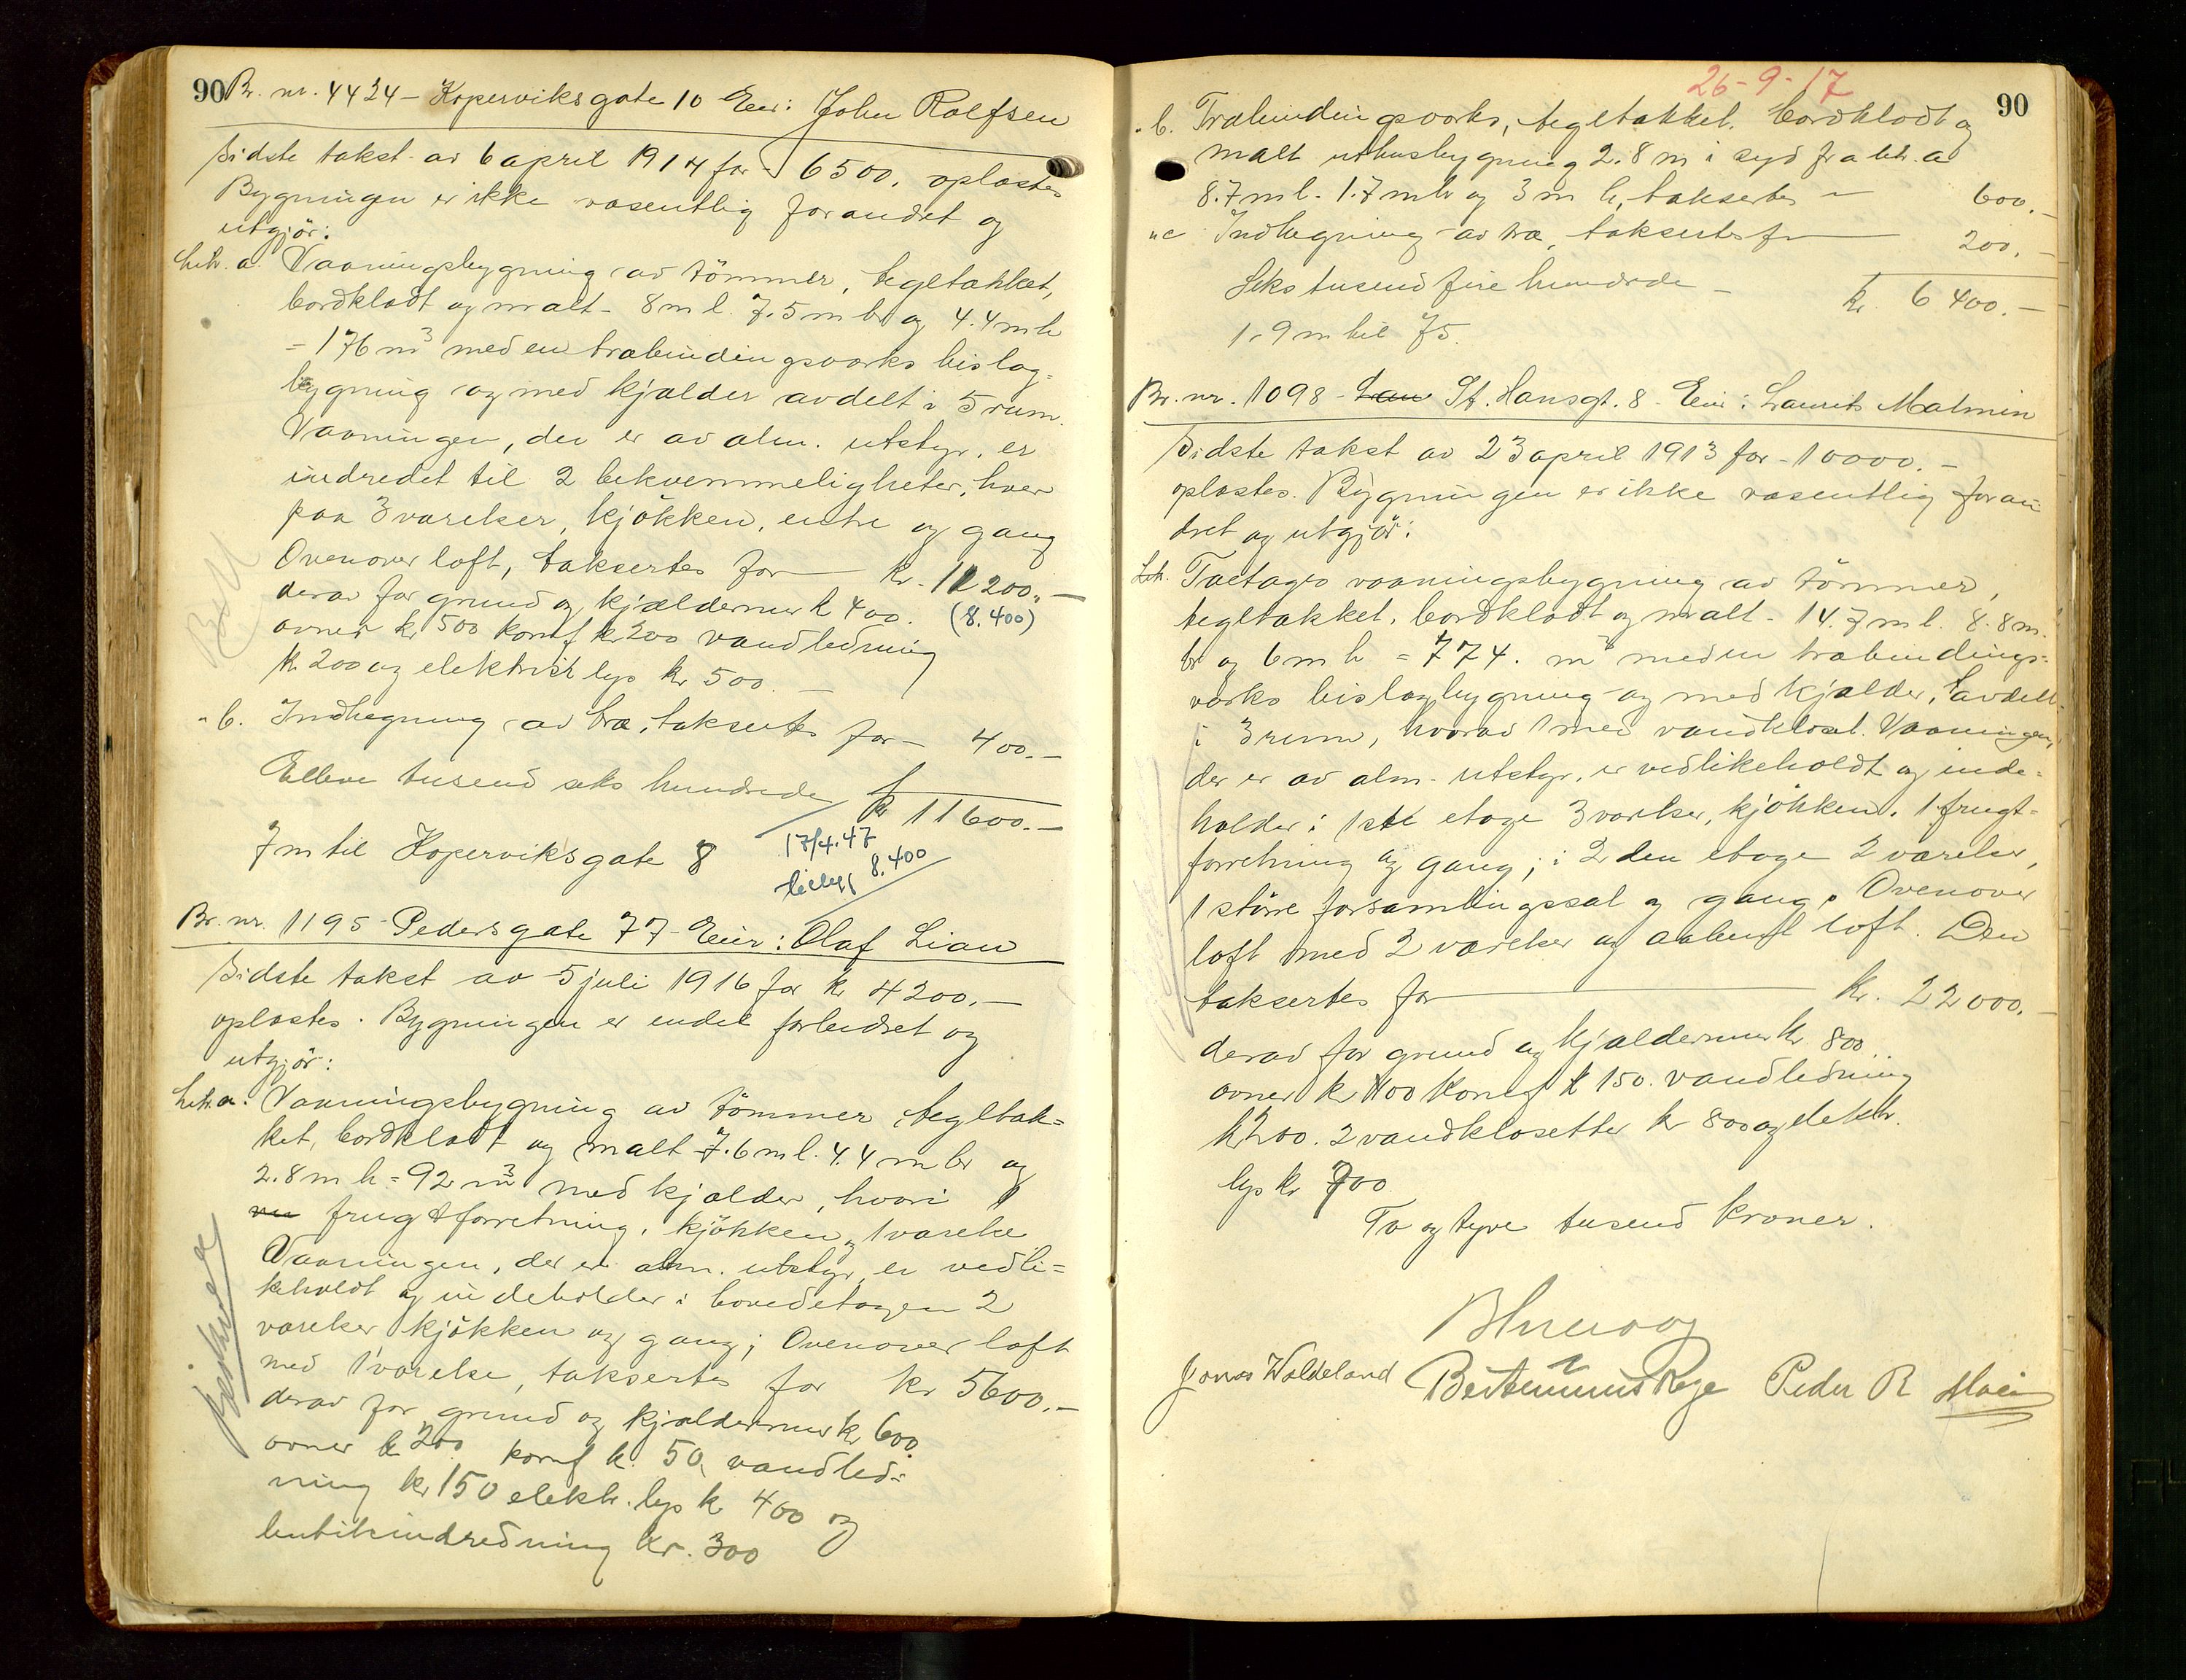 90 Br. nr. 4424 - Koperviksgate 10 Eier: John Rolfsen
Sidste takst av 6 april 1914 for 6500. oplæstes
Bygningen er ikke væsentlig forandret og
utgjör:
Litr. a. Vaaningsbygning av tömmer, tegltækket,
bordklædt og malt - 8 m l. 7.5 m br og 4.4 m h
= 176 m³ med en træbindingsværks bislag=
bygning og med kjælder avdelt i 5 rum.
Vaaningen, der er av alm. utstyr, er
indredet til 2 bekvemmeligheter, hver
paa 3 værelser, kjökken, entre og gang
Ovenover loft, taksertes for kr. 11200.-
derav for grund og kjældermur k 400. (8.400)
ovner kr 500 komf kr 200 vandledning
k 200 og elektrisk lys kr 500.-
" b. Indhegning av træ, taksertes for - 400.-
Elleve tusend seks hundrede kr 11600.-
7 m til Koperviksgate 8
17/4.47
8.400
Br. nr. 1195 - Pedersgate 77 - Eier: Olaf Lian
Sidste takst av 5 juli 1916 for kr 4200.-
oplæstes. Bygningen er endel forbedret og
utgjör:
Litr. a. Vaaningsbygning av tömmer, tegltæk=
ket, bordklædt og malt - 7.6 m l. 4.4 m br og
2.8 m h = 92 m³ med kjælder, hvori 1
frugtforretning, kjökken og 1 værelse
Vaaningen, der er alm. utstyr, er vedli=
keholdt og indeholder i hovedetagen 2
værelser kjökken og gang; Ovenover loft
med 1 værelse, taksertes for kr 5600.-
derav for grund og kjældermur kr 600.
ovner k 200 komf k. 50, vandled=
ning kr 150 elektr. lys k 400 og
butikindredning kr. 300
26-9-17
90
" b. Træbindingsværks, tegltækket, bordklædt og
malt uthusbygning 2.8 m i syd fra litr. a
8.7 m l. 1.7 m br og 3 m h, taksertes - 600.-
" c Indhegning av træ, taksertes for 200.-
Seks tusend fire hundrede - kr. 6400.-
1.9 m til 75.
Br. nr. 1098 - St. Hansgt. 8 - Eier: Laurits Malmin
Sidste takst av 23 april 1913 for - 10000.-
oplæstes. Bygningen er ikke væsentlig foran
dret og utgjör:
Litr. Toetages vaaningsbygning av tömmer,
tegltækket, bordklædt og malt - 14.7 m l. 8.8 m.
br og 6 m h = 774. m³ med en træbindings=
værks bislagbygning og med kjælder, avdelt
i 3 rum, hvorav 1 med vandklosæt. Vaaningen,
der er av alm. utstyr, er vedlikeholdt og inde=
holder i 1ste etage 3 værelser, kjökken, 1 frugt=
forretning og gang; i 2den etage 2 værelser,
1 större forsamlingssal og gang. Ovenover
loft med 2 værelser og aabent loft. Den
taksertes for kr. 22000.-
derav for grund og kjældermur kr. 800.
ovner kr 400 komf k 150. vandledning
k 200. 2 vandklosetter kr 800 og elektr.
lys kr 700
To og tyve tusend kroner.
Jonas Waldeland Peder R